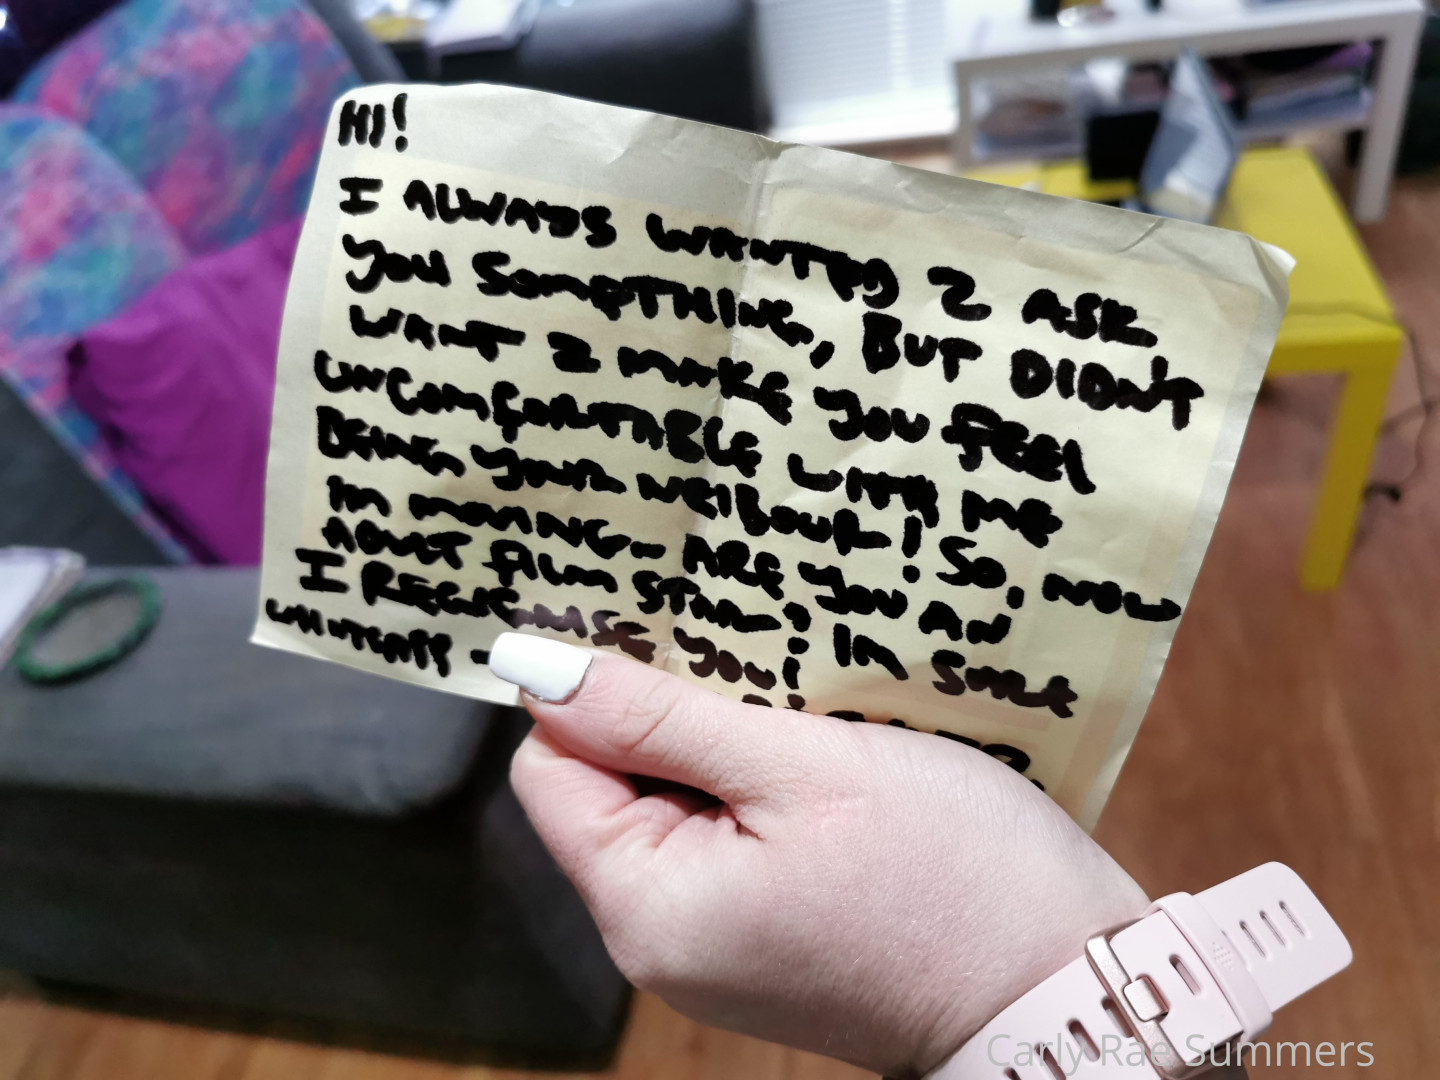 HI!
I ALWAYS WANTED 2 ASK
YOU SOMETHING, BUT DIDN'T
WANT 2 MAKE YOU FEEL
UNCOMFORTABLE WITH ME
BEING YOUR NEIBOUR! SO, NOW
IM MOVING- ARE YOU AN
ADULT FILM STAR? IM SURE
I REGICENSE YOU!
WHATSAPP -
Carly Rae Summers